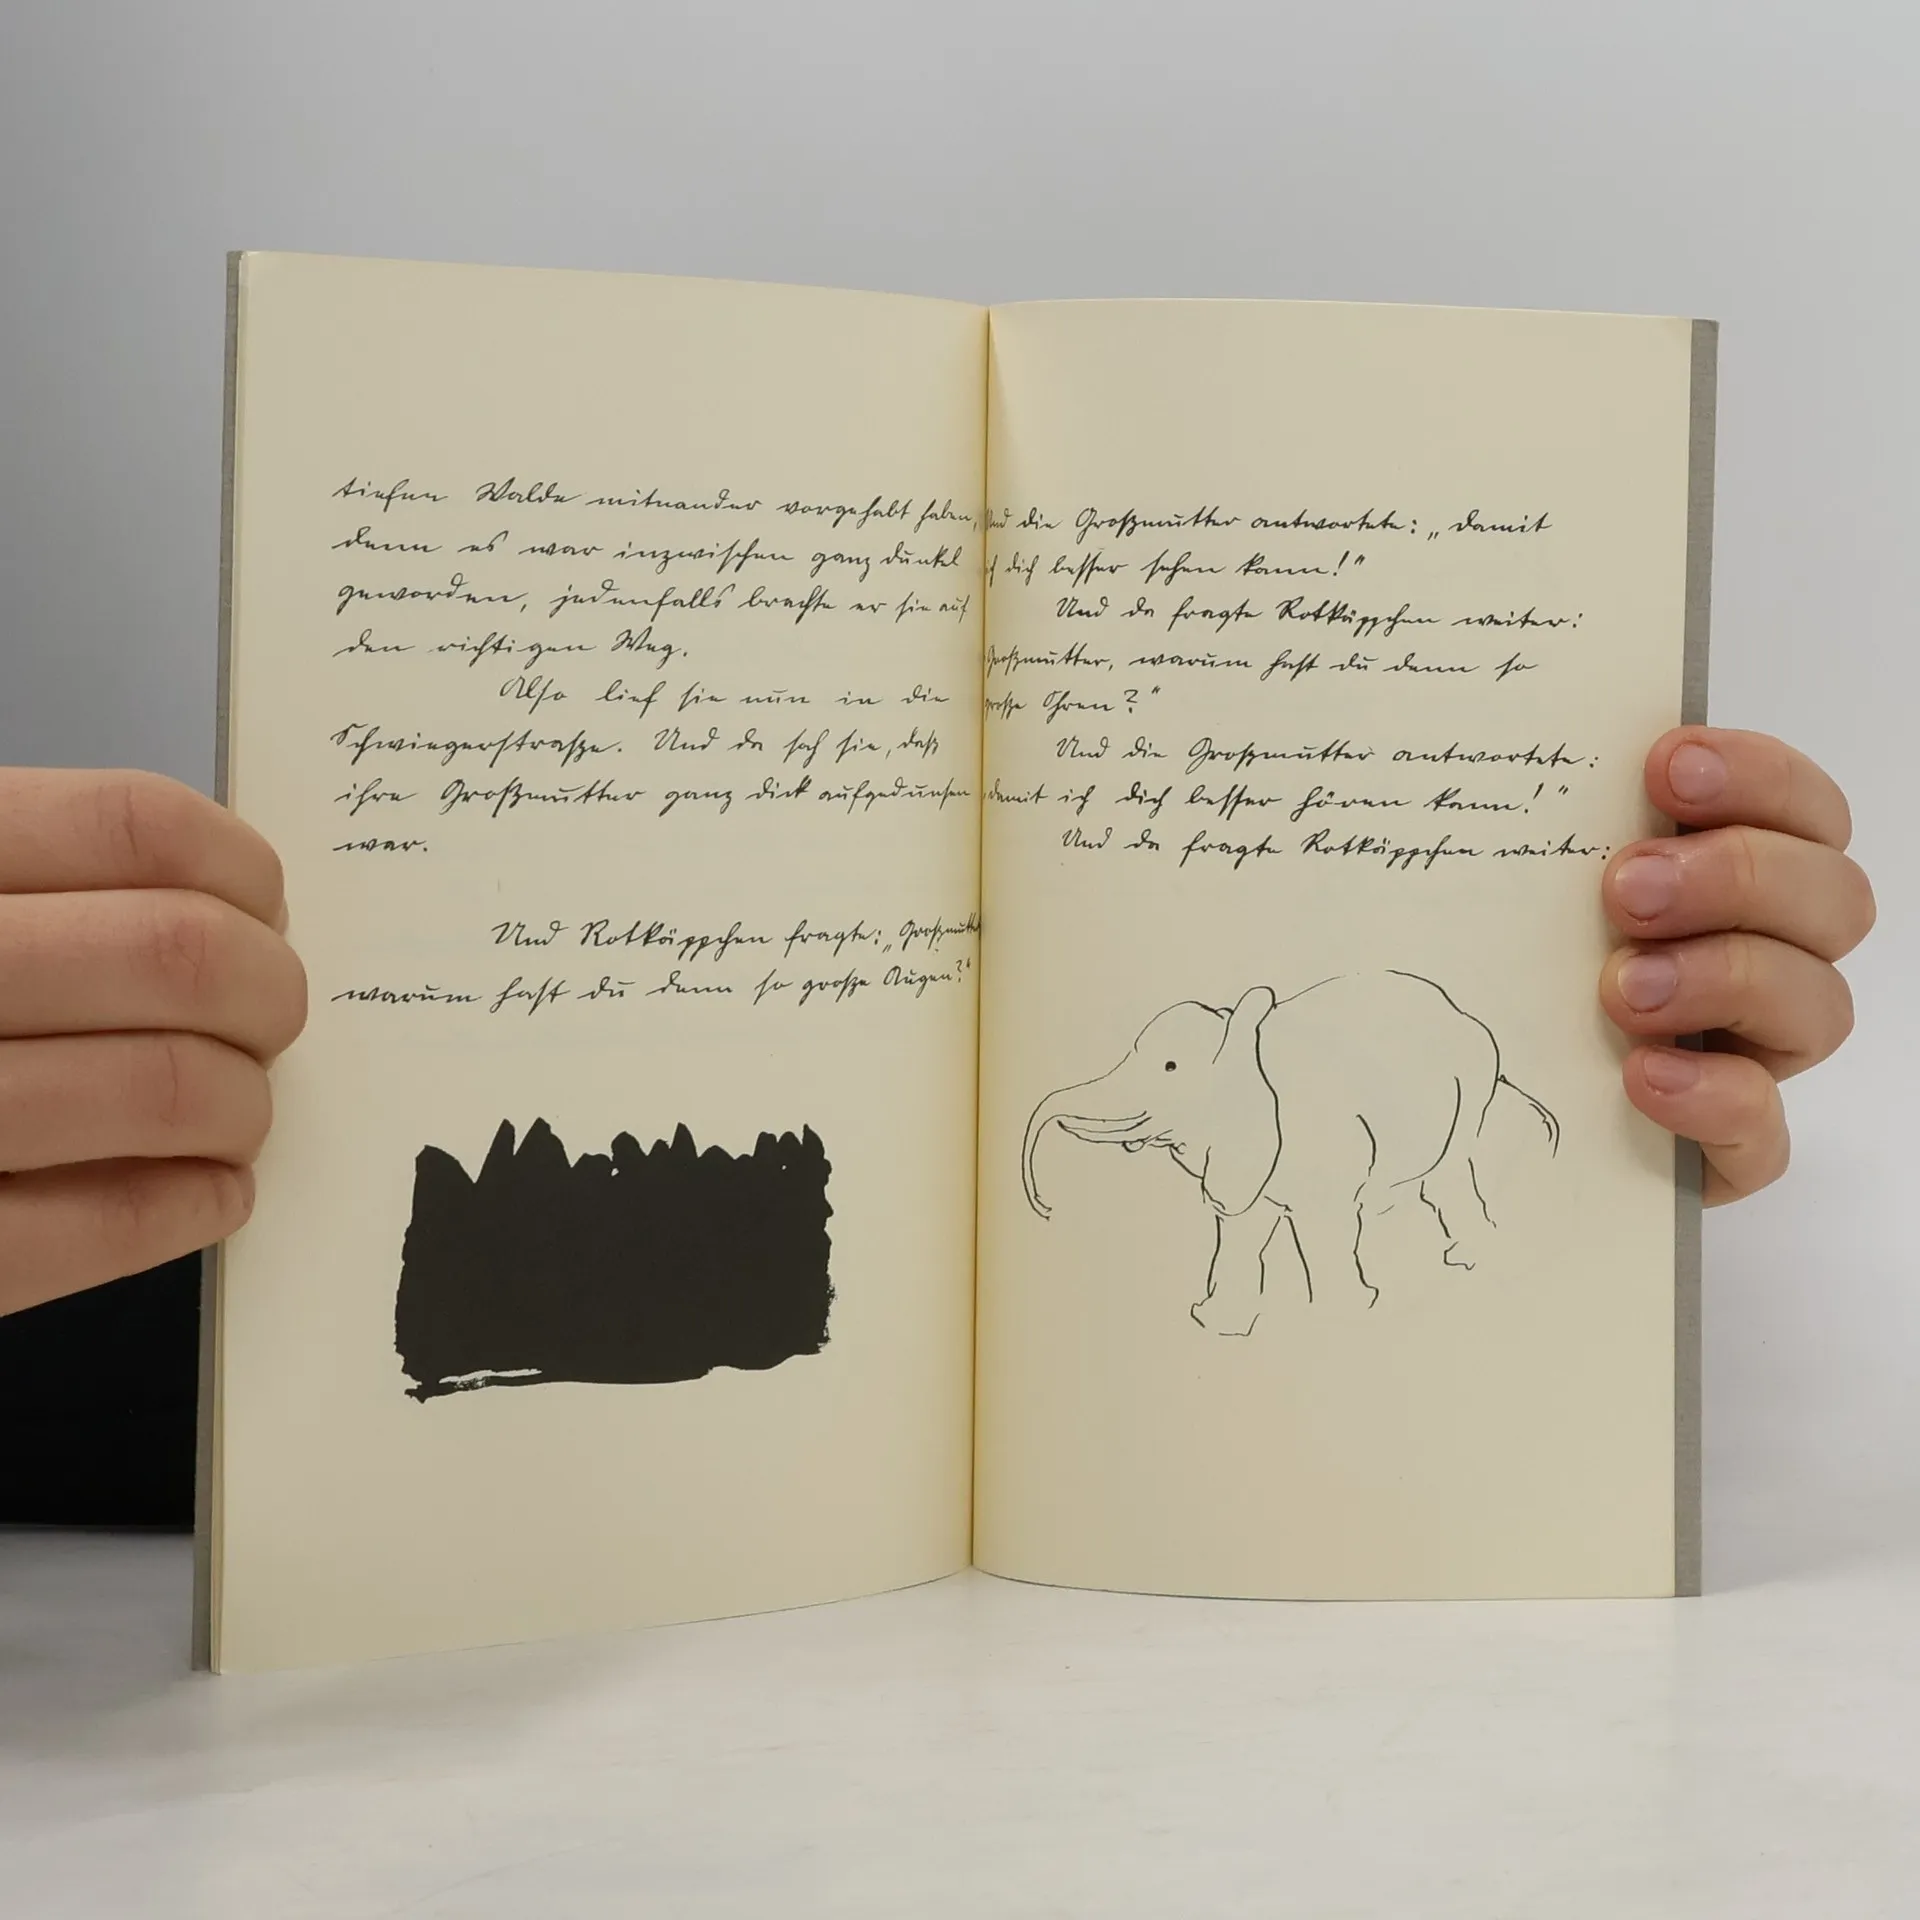 tiefen Walde miteinander vorgehabt haben,
denn es war inzwischen ganz dunkel
geworden, jedenfalls brachte er sie auf
den richtigen Weg.
Also lief sie nun in die
Schwiegerstraße. Und da sah sie, daß
ihre Großmutter ganz dick aufgedunsen
war.
Und Rotkäppchen fragte: „Großmutter
warum hast du denn so große Augen?“
Und die Großmutter antwortete: „damit
ich dich besser sehen kann!“
Und da fragte Rotkäppchen weiter:
„Großmutter, warum hast du denn so
große Ohren?“
Und die Großmutter antwortete:
„damit ich dich besser hören kann!“
Und da fragte Rotkäppchen weiter: